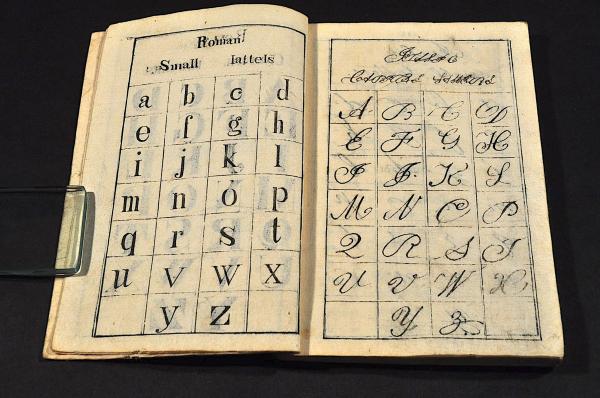 Roman
Small lattels
a b c d
e f g h
i j k l
m n o p
q r s t
u v w x
y z
A B C D
E F G H
I J K L
M N O P
Q R S T
U V W X
Y Z